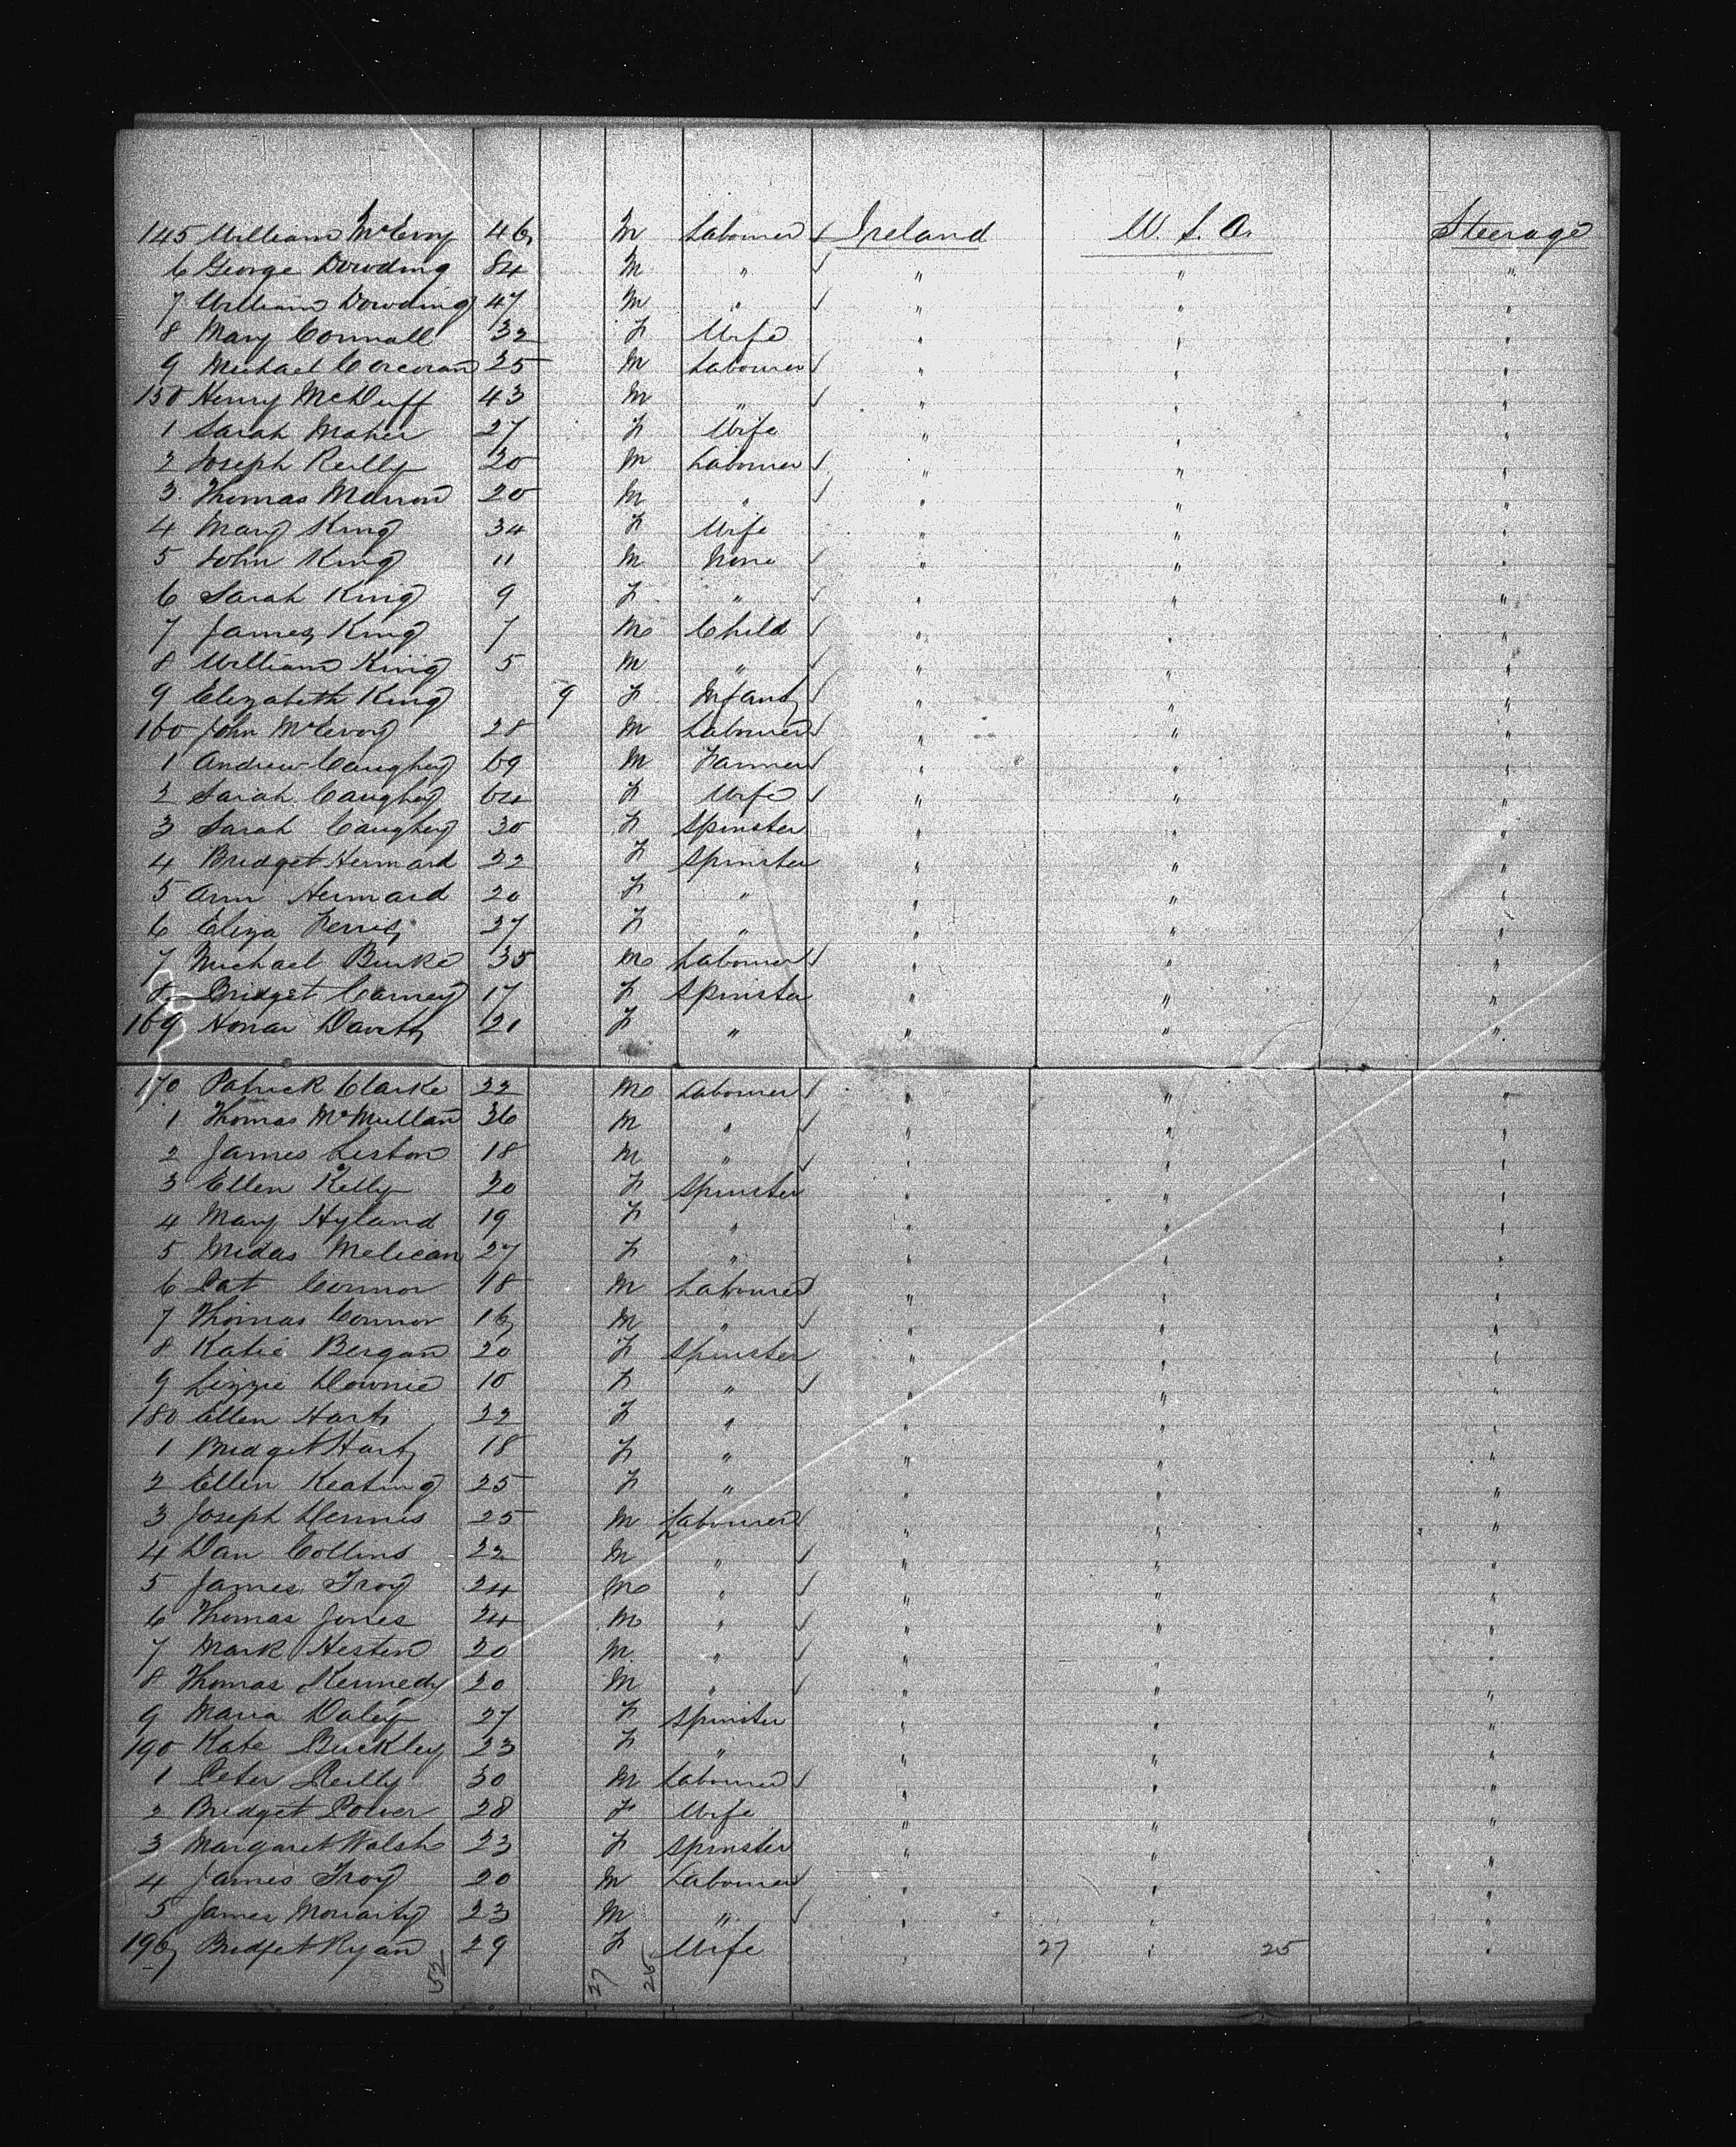 145 William McEvoy 46 M Labourer ✓ Ireland U.S.A. Steerage
6 George Dowding 84 M " ✓ " " "
7 William Dowding 47 M " ✓ " " "
8 Mary Connall 32 F Wife " " "
9 Michael Corcoran 25 M Labourer ✓ " " "
150 Henry McDuff 43 M " ✓ " " "
1 Sarah Maher 27 F Wife " " "
2 Joseph Reilly 20 M Labourer ✓ " " "
3 Thomas Marron 20 M " ✓ " " "
4 Mary King 34 F Wife " " "
5 John King 11 M None ✓ " " "
6 Sarah King 9 F " ✓ " " "
7 James King 7 M Child ✓ " " "
8 William King 5 M " ✓ " " "
9 Elizabeth King 9 F Infant ✓ " " "
160 John McEvoy 28 M Labourer ✓ " " "
1 Andrew Caughey 69 M Farmer ✓ " " "
2 Sarah Caughey 64 F Wife ✓ " " "
3 Sarah Caughey 30 F Spinster " " "
4 Bridget 22 F Spinster " " "
5 Ann 20 F " " " "
6 Eliza Ferris 37 F " " " "
7 Michael Burke 35 M Labourer ✓ " " "
8 Bridget Carney 17 F Spinster " " "
169 Honar Davitt 20 F " " " "
170 Patrick Clarke 22 M Labourer ✓ " " "
1 Thomas McMullan 36 M " ✓ " " "
2 James Leston 18 M " ✓ " " "
3 Ellen Kelly 30 F Spinster " " "
4 Mary Hyland 19 F " " " "
5 Midas Melican 27 F " " " "
6 Pat Connor 18 M Labourer " " "
7 Thomas Connor 16 M " ✓ " " "
8 Katie Bergan 20 F Spinster " " "
9 Lizzie Downie 10 F " ✓ " " "
180 Ellen Hart 22 F " " " "
1 Bridget Hart 18 F " " " "
2 Ellen Keating 25 F " " " "
3 Joseph Dennis 25 M Labourer " " "
4 Dan Collins 22 M " ✓ " " "
5 James Troy 24 M " ✓ " " "
6 Thomas Jones 24 M " ✓ " " "
7 Mark Hestin 20 M " ✓ " " "
8 Thomas Kennedy 20 M " ✓ " " "
9 Maria Daley 27 F Spinster " " "
190 Kate Buckley 23 F " " " "
1 Peter Reilly 30 M Labourer ✓ " " "
2 Bridget Power 28 F Wife " " "
3 Margaret Walsh 23 F Spinster " " "
4 James Troy 20 M Labourer " " "
5 James Moriarty 23 M " ✓ " " "
196 Bridget Ryan 29 F Wife " 27 " 25 "
52 27 25